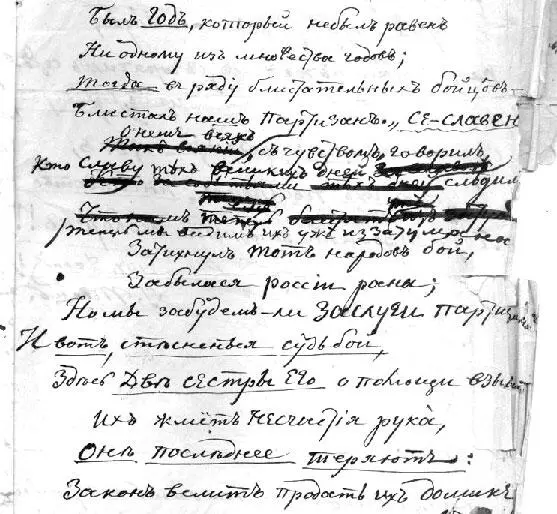 Былъ Годъ, который небылъ равенъ
Ни одному изъ множества годовъ;
Тогда въ ряду блистательныхъ бойцовъ
Блисталъ нашъ Партизанъ „СЕ-СЛАВЕН
О немъ всякъ
съ чувствомъ, говорилъ
Кто славу тѣхъ великихъ дней
слѣдилъ
теперь мы видимъ ихъ ужъ изъ за тумана
Затихнулъ тотъ народовъ бой,
Забылася россіи рана;
Но мы забудемъ-ли Заслуги партизана
И вотъ, стѣсненныя судьбой,
Здѣсь Двѣ СЕСТРЫ ЕГО о помощи взываютъ
Ихъ жметъ несчастія рука,
Онѣ послѣднее теряютъ:
Законъ велитъ продать ихъ домикъ